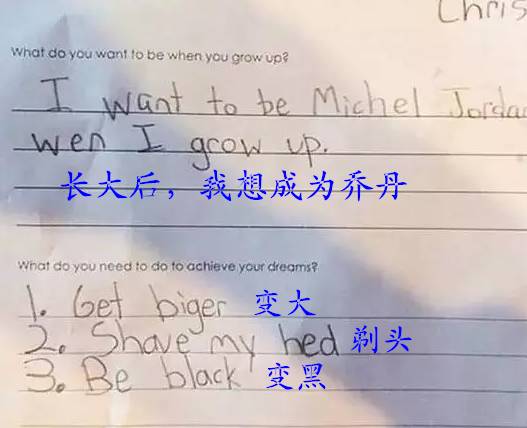 Chris
What do you want to be when you grow up?
I want to be Michel Jorda
wen I grow up.
长大后，我想成为乔丹
What do you need to do to achieve your dreams?
1. Get biger 变大
2. Shave my hed 剃头
3. Be black 变黑